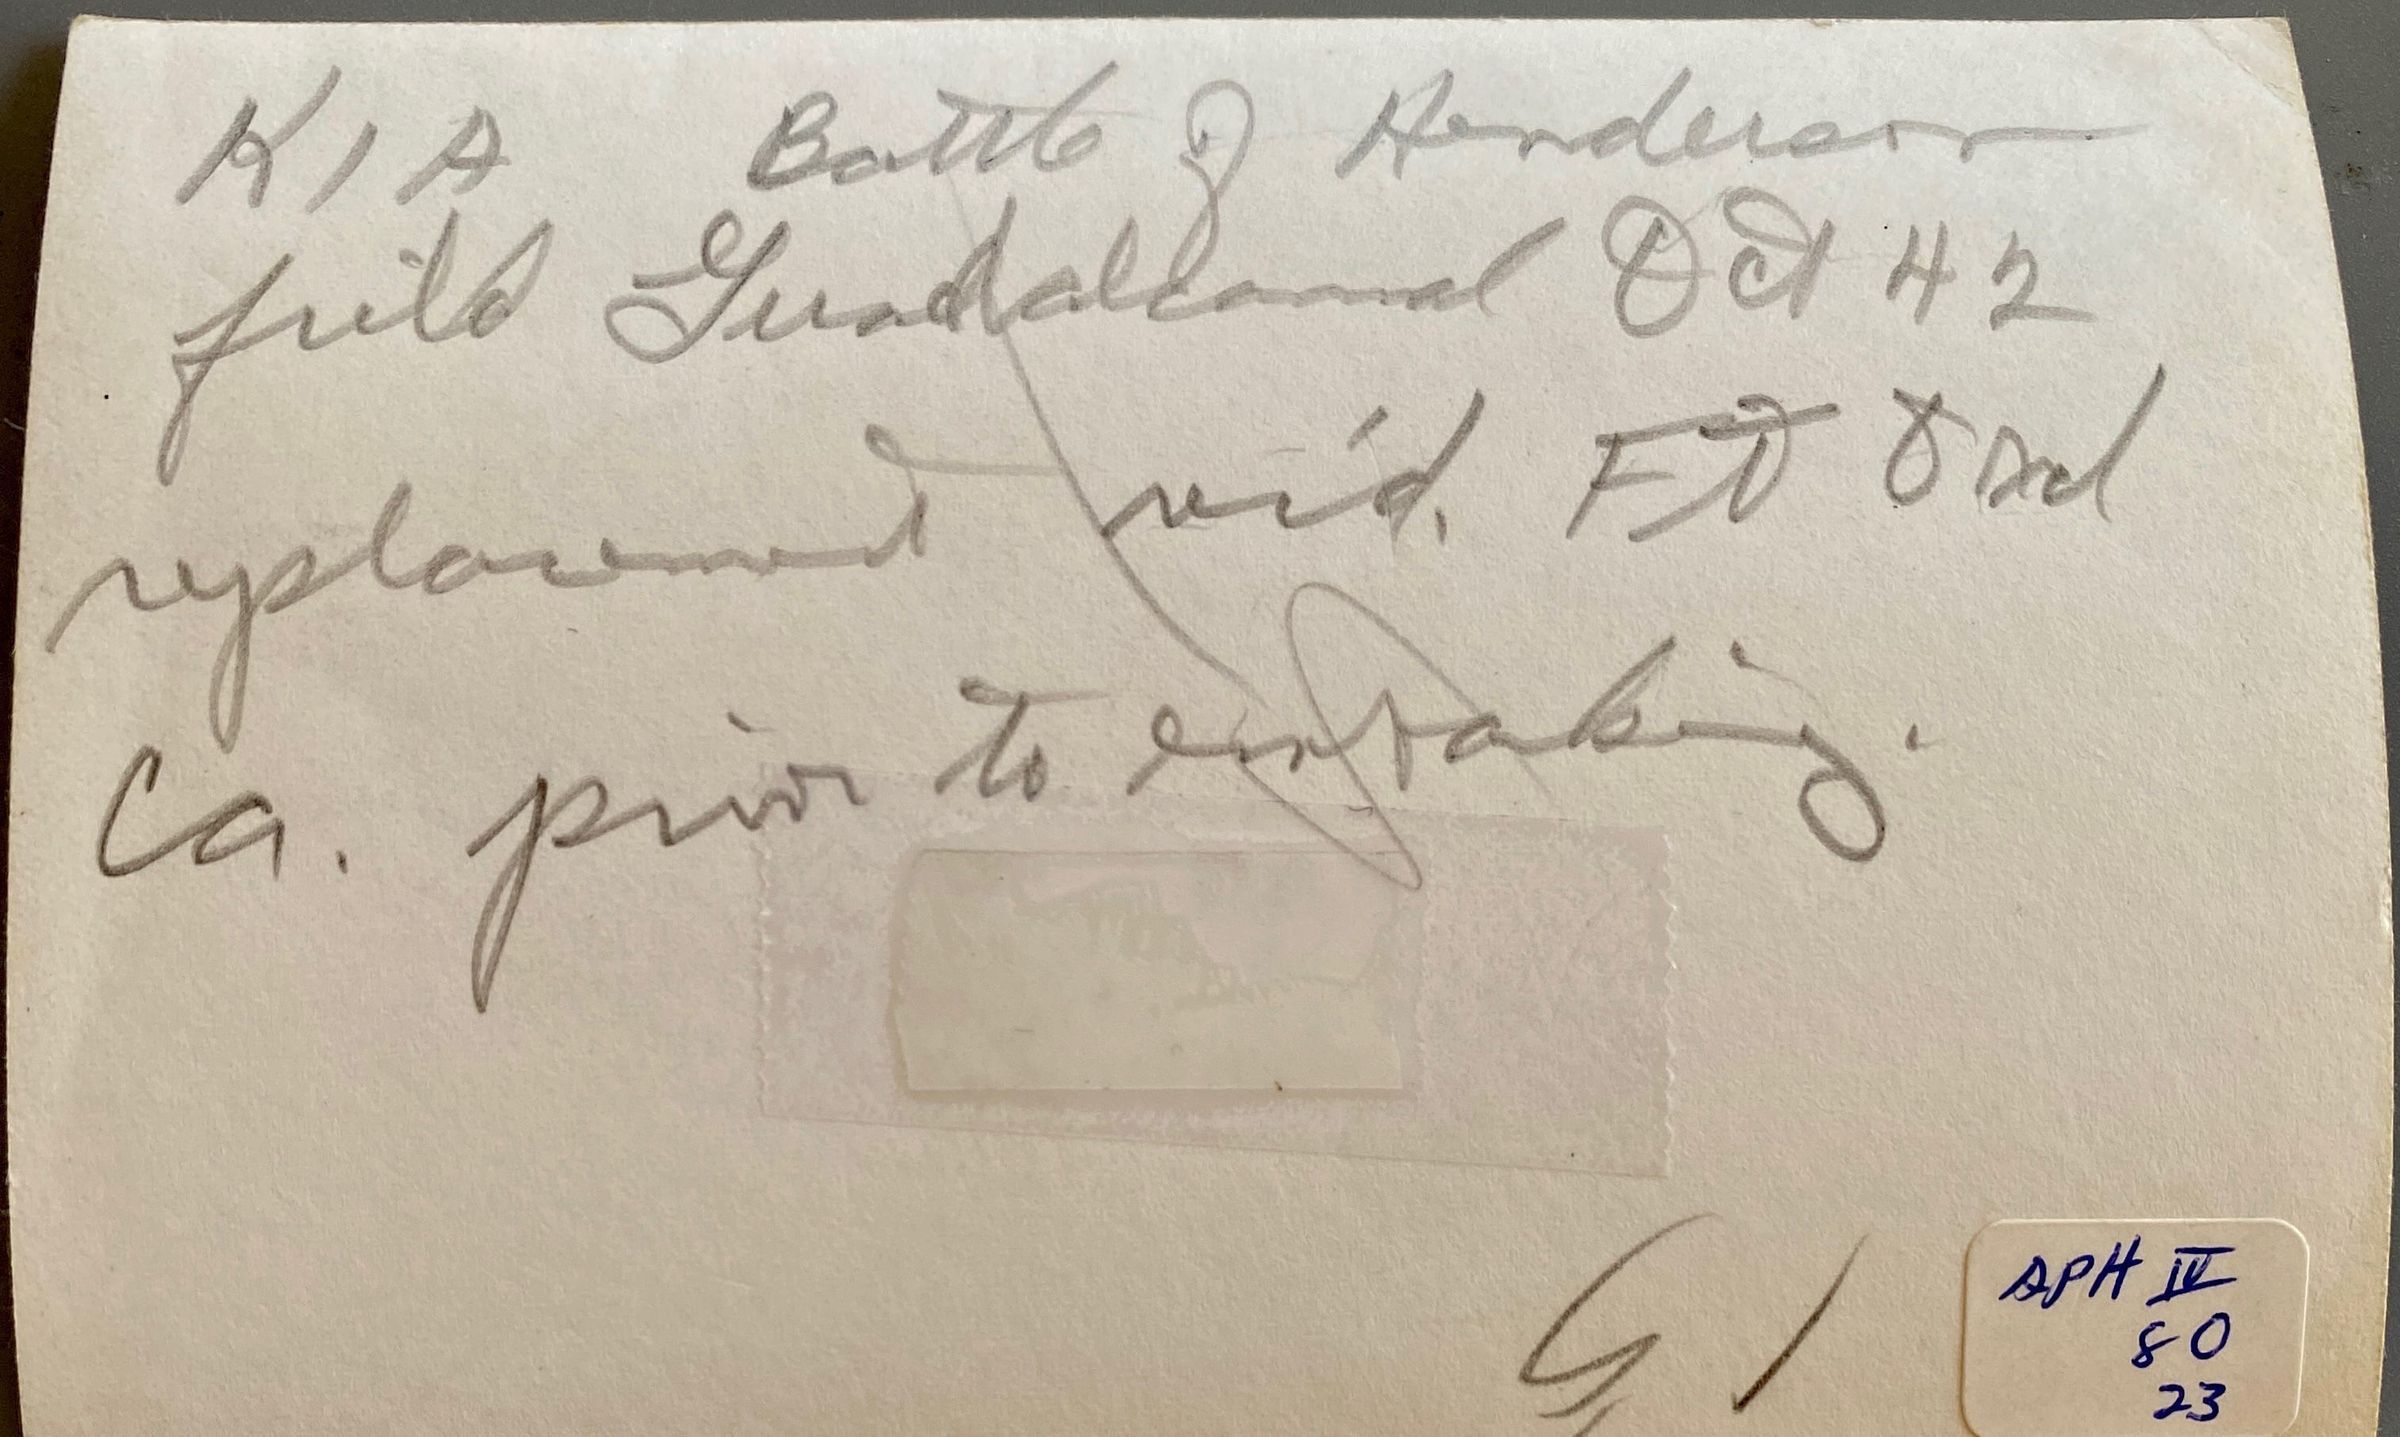 KIA Battle of Henderson
field Guadalcanal Oct 42
replacement rec'd. FT Ord
Ca. prior to embarking.
APH IV
80
23